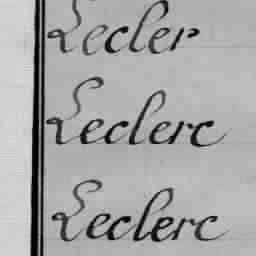 Lecler
Leclerc
Leclerc